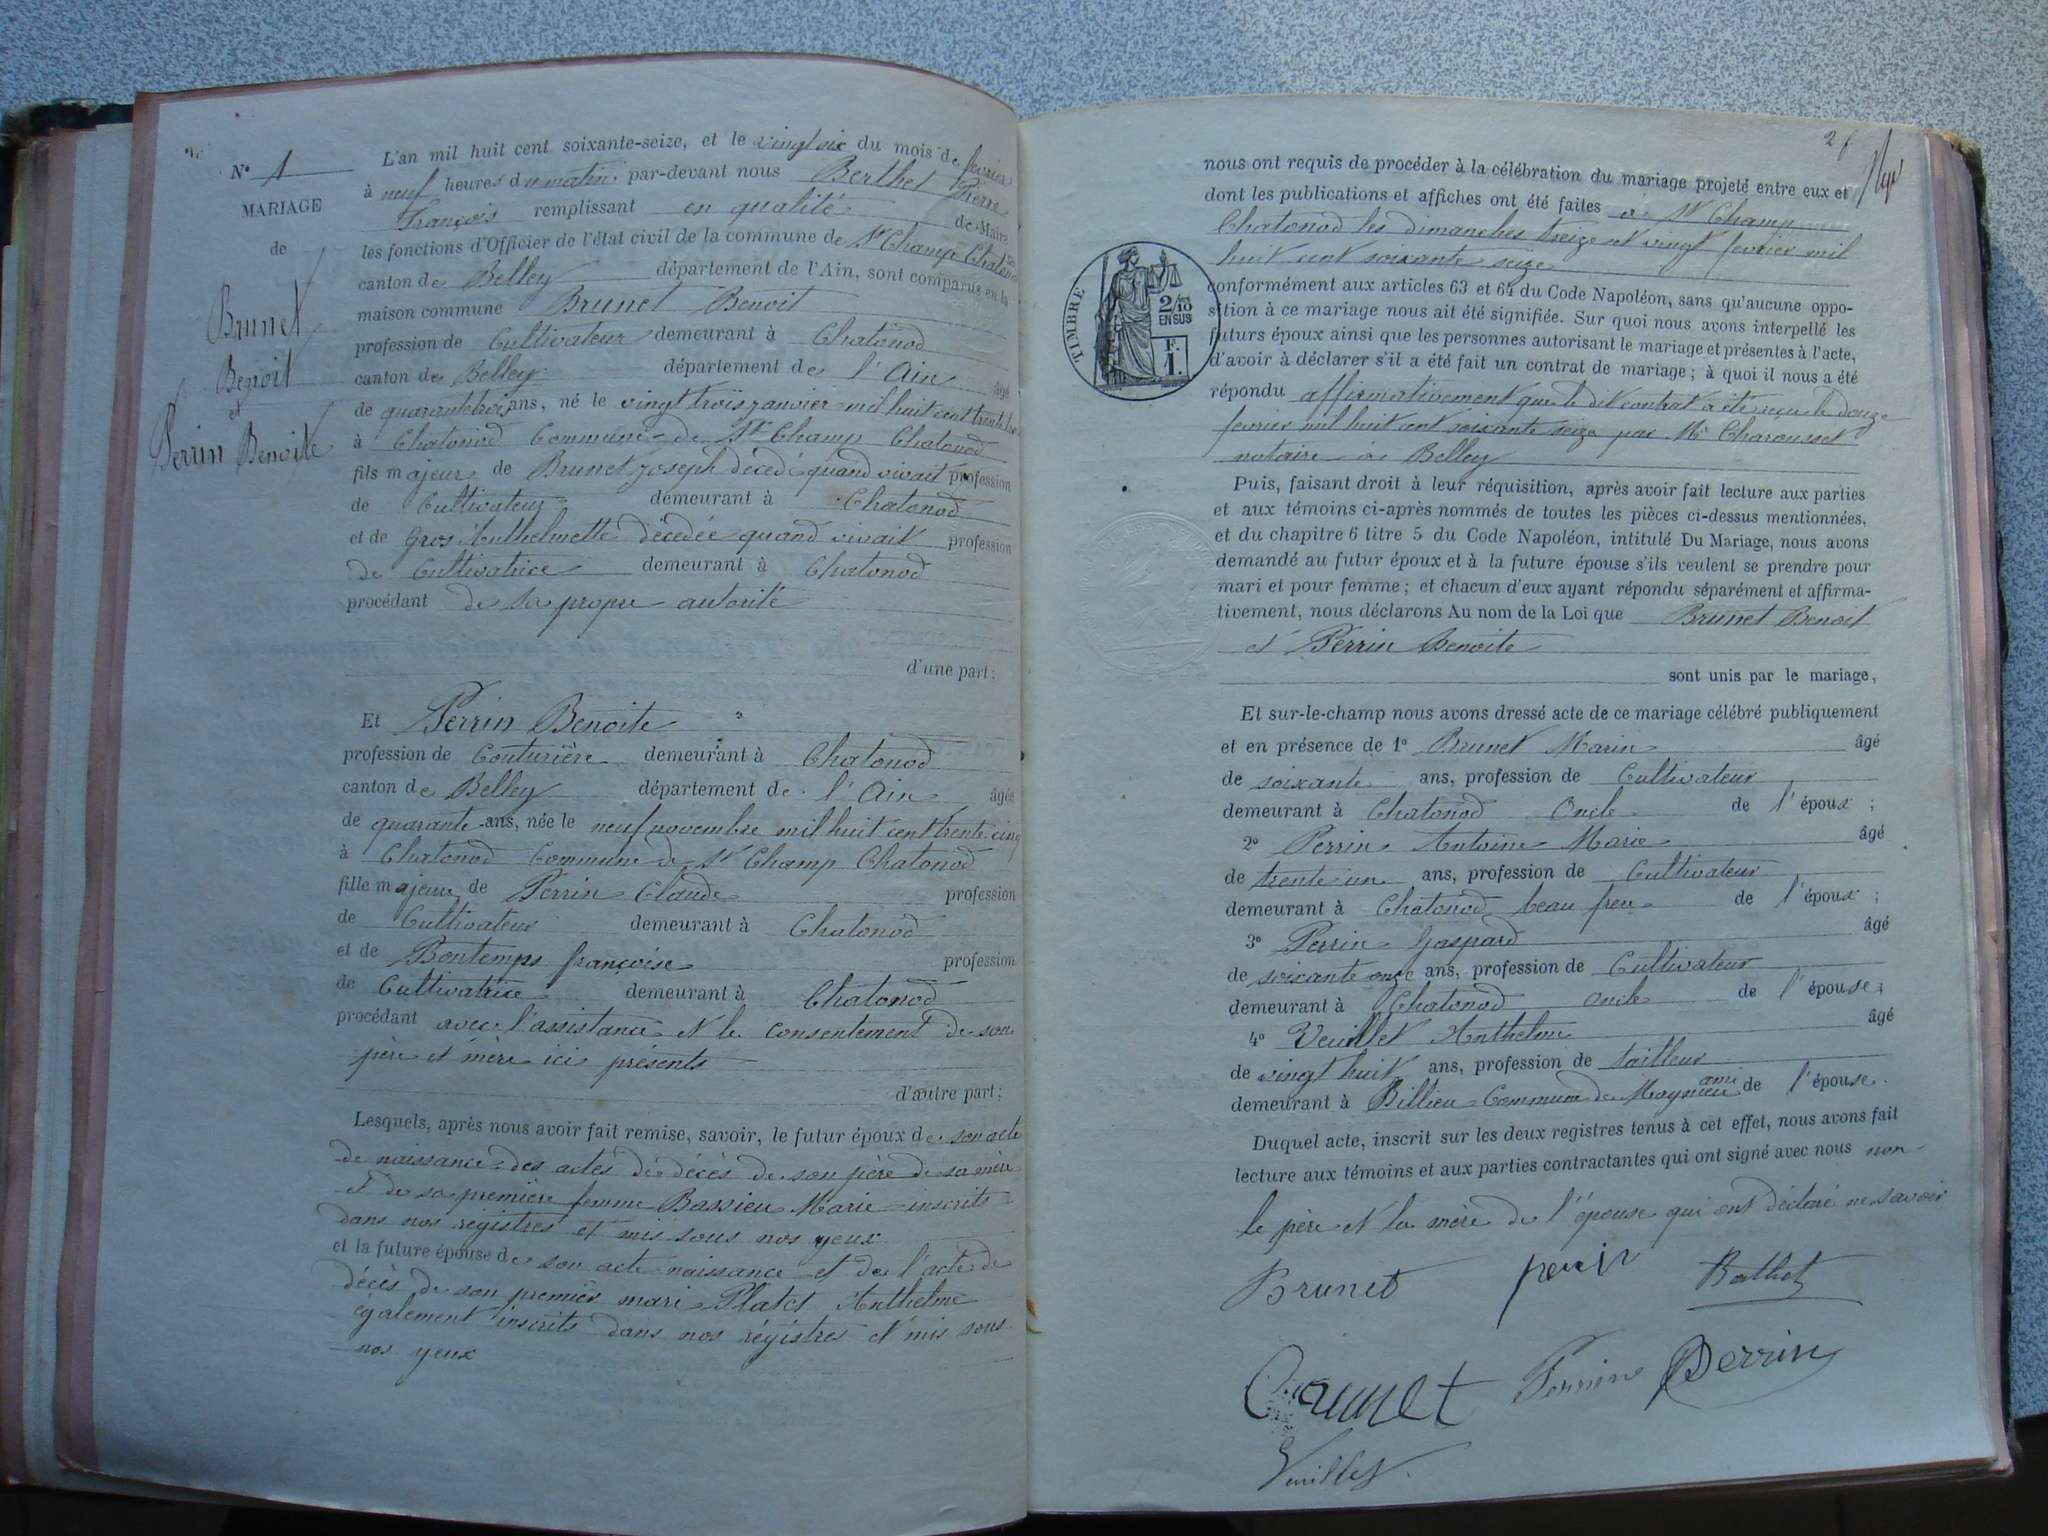 N° 1
MARIAGE
de
Brunet
Benoit
et
Perrin Benoite
L'an mil huit cent soixante-seize, et le vingt six du mois de fevrier
à neuf heures du matin, par-devant nous Berthet Pierre
François remplissant en qualité de Maire
les fonctions d'Officier de l'état civil de la commune de St Champ Chatonod
canton de Belley département de l'Ain, sont comparus en la
maison commune Brunet Benoit
profession de Cultivateur demeurant à Chatonod
canton de Belley département de l'Ain âgé
de quarante trois ans, né le vingt trois janvier mil huit cent trente trois
à Chatonod Commune de St Champ Chatonod
fils majeur de Brunet Joseph décedé quand vivait profession
de Cultivateur demeurant à Chatonod
et de Gros Anthelmette décedée quand vivait profession
de Cultivatrice demeurant à Chatonod
procédant de sa propre autorité
d'une part;
Et Perrin Benoite
profession de Couturière demeurant à Chatonod
canton de Belley département de l'Ain âgée
de quarante ans, née le neuf novembre mil huit cent trente cinq
à Chatonod Commune de St Champ Chatonod
fille majeure de Perrin Claude profession
de Cultivateur demeurant à Chatonod
et de Bontemps françoise profession
de Cultivatrice demeurant à Chatonod
procédant avec l'assistance et le consentement de son
père et mère ici présents
d'autre part;
Lesquels, après nous avoir fait remise, savoir, le futur époux de son acte
de naissance des actes de décès de son père de sa mère
et de sa première femme Bassieu Marie inscrits
dans nos régistres et mis sous nos yeux
et la future épouse de son acte naissance et de l'acte de
décès de son premier mari Platet Anthelme
également inscrits dans nos régistres et mis sous
nos yeux
26
nous ont requis de procéder à la célébration du mariage projeté entre eux et
dont les publications et affiches ont été faites à St Champ
Chatonod les dimanches treize et vingt fevrier mil
huit cent soixante seize
TIMBRE
2/10
EN SUS
F.
1.
conformément aux articles 63 et 64 du Code Napoléon, sans qu'aucune oppo-
sition à ce mariage nous ait été signifiée. Sur quoi nous avons interpellé les
futurs époux ainsi que les personnes autorisant le mariage et présentes à l'acte,
d'avoir à déclarer s'il a été fait un contrat de mariage; à quoi il nous a été
répondu affirmativement que le dit contrat a été reçu le douze
fevrier mil huit cent soixante seize par Me Charousset
notaire à Belley
Puis, faisant droit à leur réquisition, après avoir fait lecture aux parties
et aux témoins ci-après nommés de toutes les pièces ci-dessus mentionnées,
et du chapitre 6 titre 5 du Code Napoléon, intitulé Du Mariage, nous avons
demandé au futur époux et à la future épouse s'ils veulent se prendre pour
mari et pour femme; et chacun d'eux ayant répondu séparément et affirma-
tivement, nous déclarons Au nom de la Loi que Brunet Benoit
et Perrin Benoite
sont unis par le mariage,
Et sur-le-champ nous avons dressé acte de ce mariage célébré publiquement
et en présence de 1° Brunet Marin âgé
de soixante ans, profession de Cultivateur
demeurant à Chatonod Oncle de l'époux;
2° Perrin Antoine Marie âgé
de trente un ans, profession de Cultivateur
demeurant à Chatonod beau frere de l'époux;
3° Perrin Gaspard âgé
de soixante onze ans, profession de Cultivateur
demeurant à Chatonod oncle de l'épouse;
4° Veuillet Anthelme âgé
de vingt huit ans, profession de tailleur
demeurant à Billieu Commune de Magnieu ami de l'épouse.
Duquel acte, inscrit sur les deux registres tenus à cet effet, nous avons fait
lecture aux témoins et aux parties contractantes qui ont signé avec nous non
le père et la mère de l'épouse qui ont déclaré ne savoir
Brunet perrin Berthet
Brunet Perrin Perrin
Veuillet